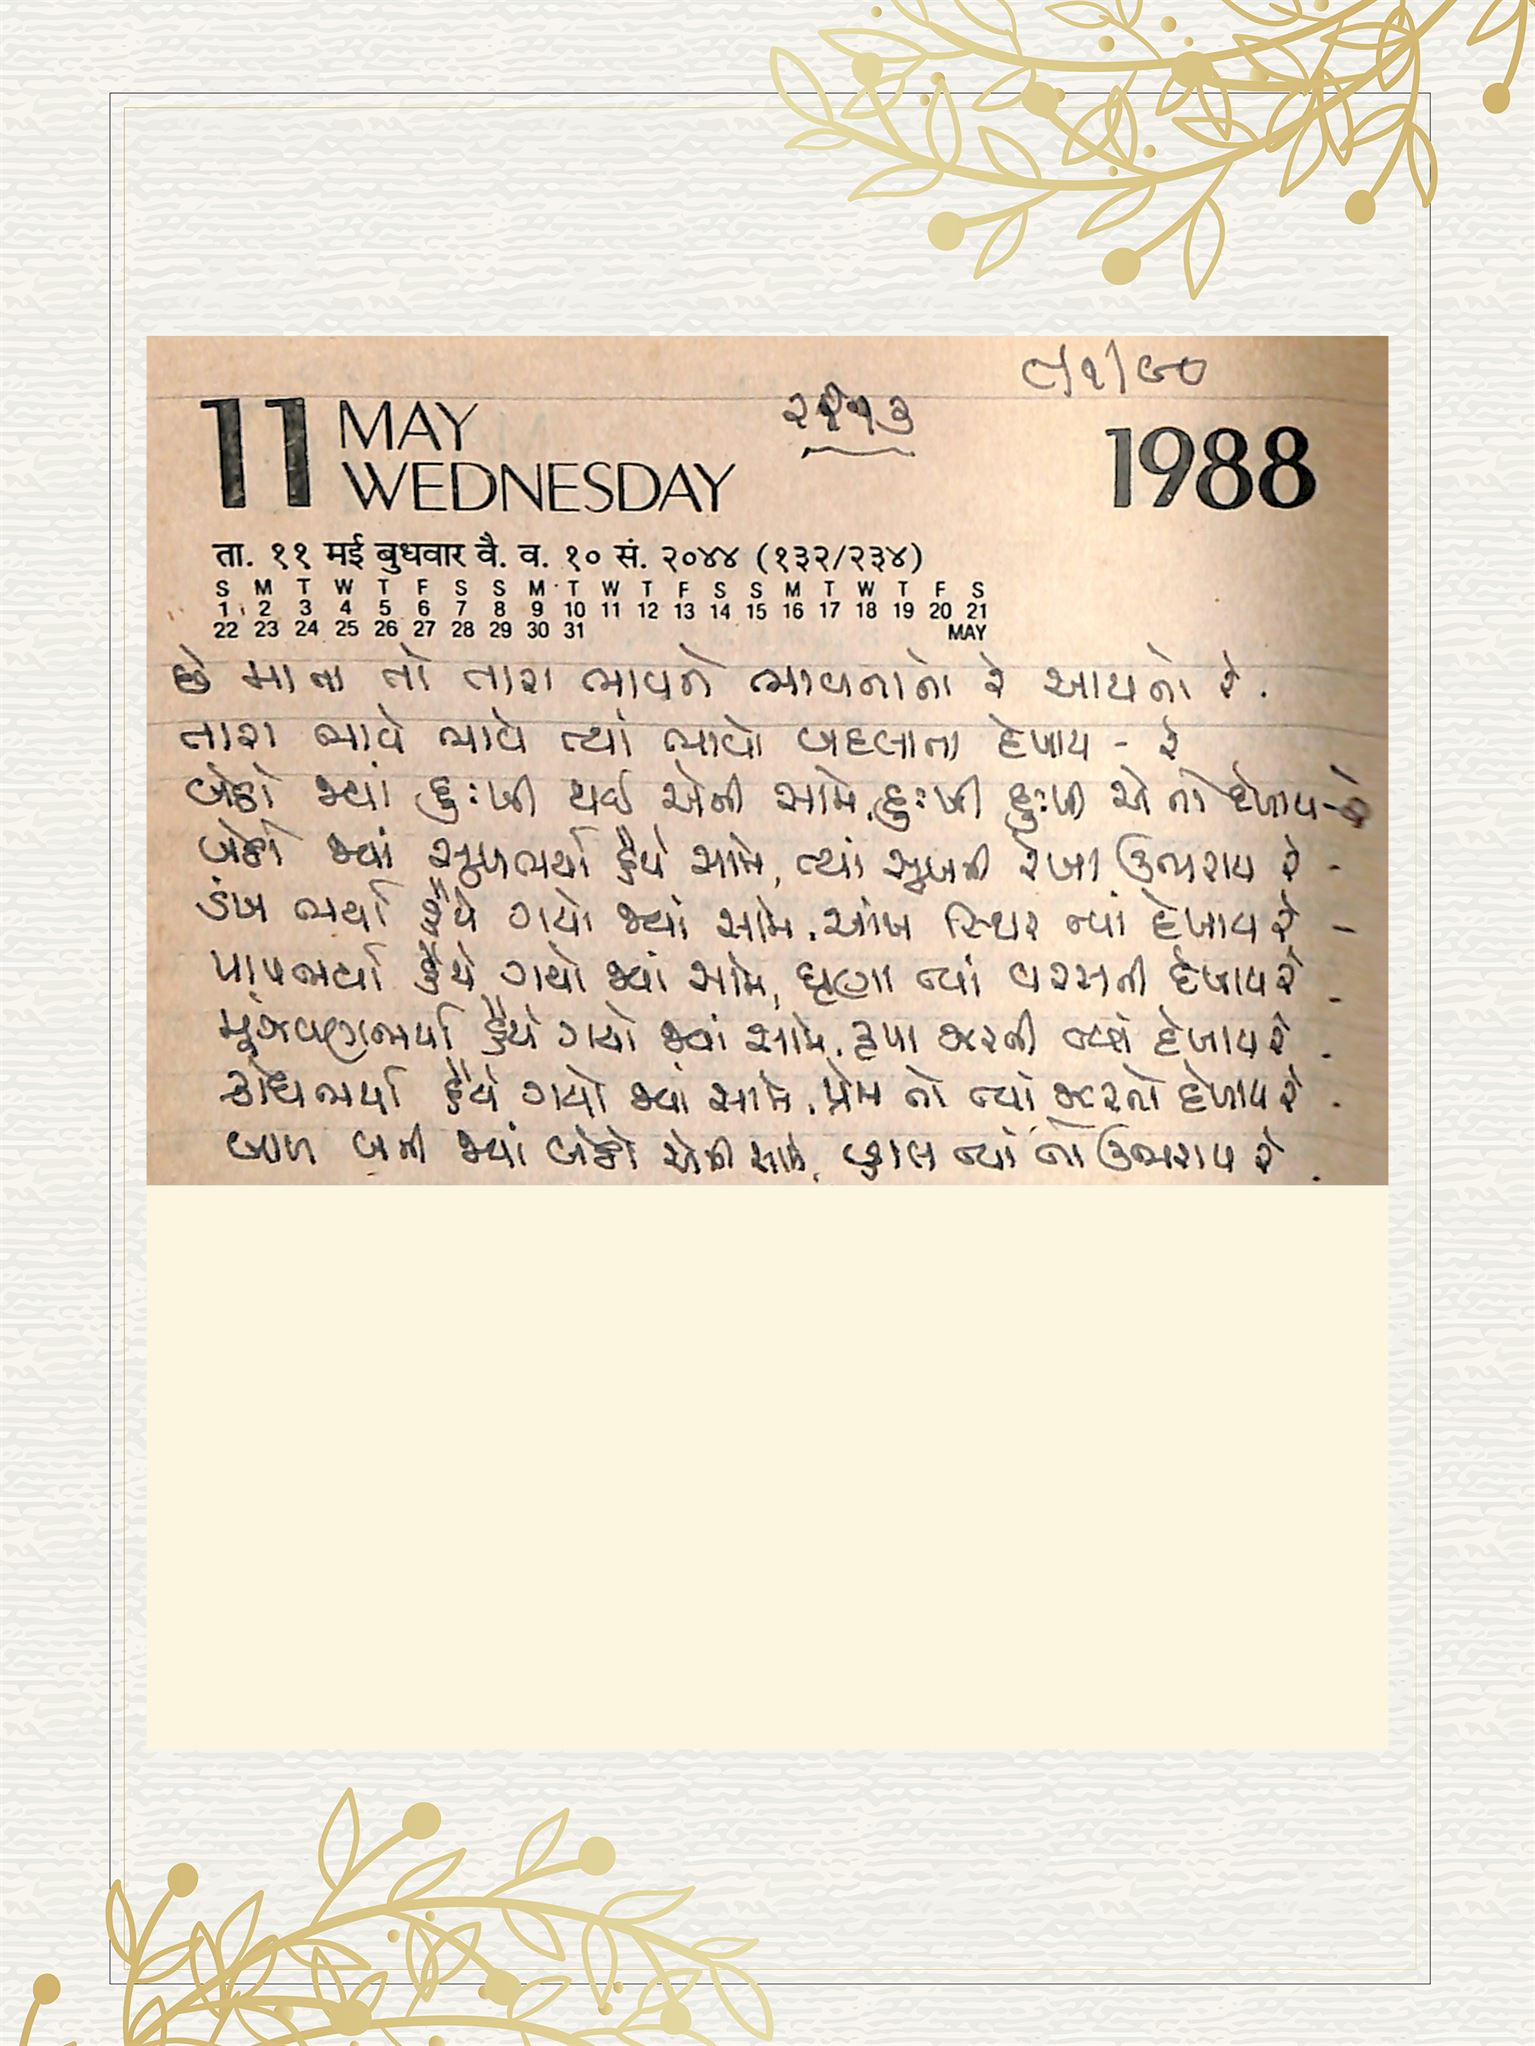 ૮/૧/૯૦
૨૧૧૩
11 MAY
WEDNESDAY
1988
ता. ११ मई बुधवार वै. व. १० सं. २०४४ (१३२/२३४)
S M T W T F S S M T W T F S S M T W T F S
1 2 3 4 5 6 7 8 9 10 11 12 13 14 15 16 17 18 19 20 21
22 23 24 25 26 27 28 29 30 31 MAY
છે માતા તો તારા ભાવને ભાવનાનો રે આયનો રે.
તારા ભાવે ભાવે ત્યાં ભાવો બદલાતા દેખાય - રે
બેઠો જ્યાં દુઃખી થઈ એની સામે, દુઃખી દુઃખી એ તો દેખાય - રે
બેઠો જ્યાં સુખભર્યા હૈયે સામે, ત્યાં સુખની રેખા ઉભરાય રે -
ડંખ ભર્યા હૈયે ગયો જ્યાં સામે, આંખ સ્થિર ત્યાં દેખાય રે -
પાપભર્યા હૈયે ગયો જ્યાં સામે, ઘૃણા ત્યાં વરસતી દેખાય રે -
મૂંઝવણભર્યા હૈયે ગયો જ્યાં સામે, કૃપા ઝરતી ત્યાં દેખાય રે -
ક્રોધભર્યા હૈયે ગયો જ્યાં સામે, પ્રેમ તો ત્યાં ઝરતો દેખાય રે -
બાળ બની જ્યાં બેઠો એની સામે, વ્હાલ ત્યાં તો ઉભરાય રે -